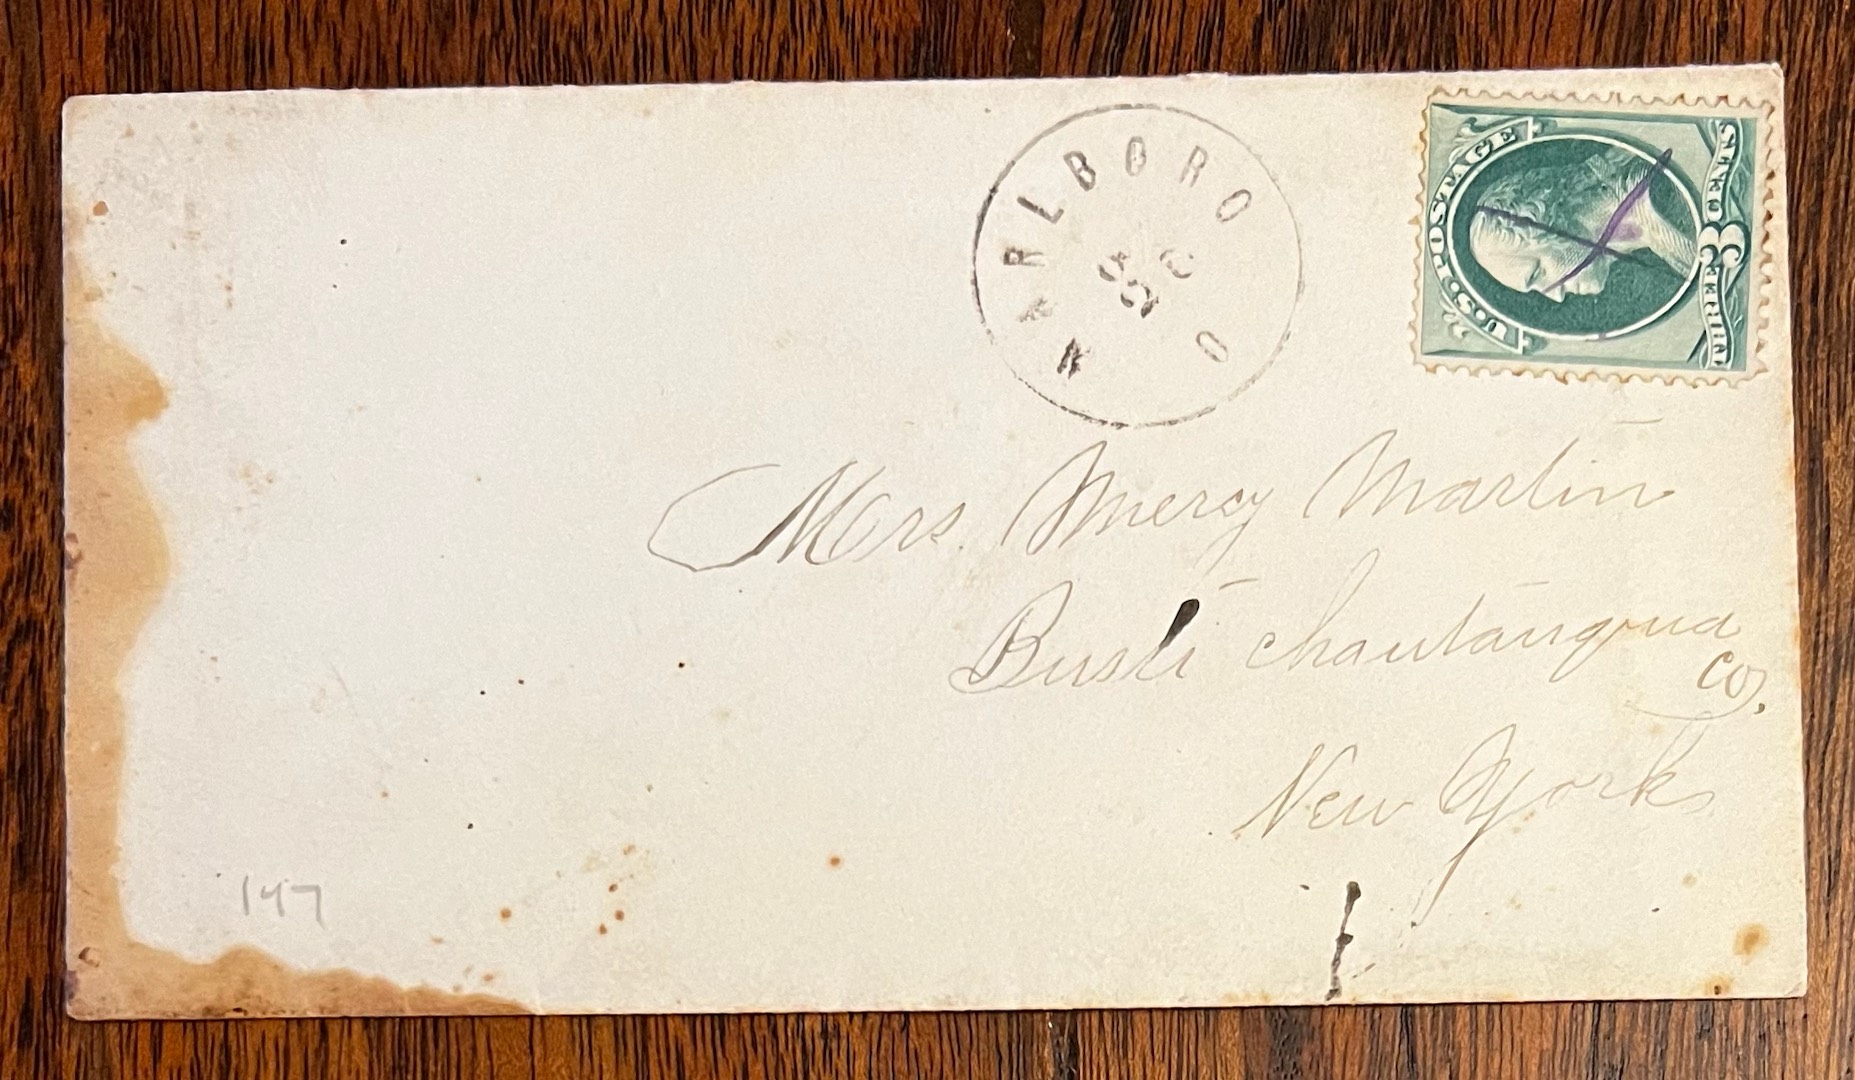 MARLBORO
O
U.S. POSTAGE
THREE 3 CENTS
Mrs. Mercy Martin
Busti Chautauqua
Co,
New York
147